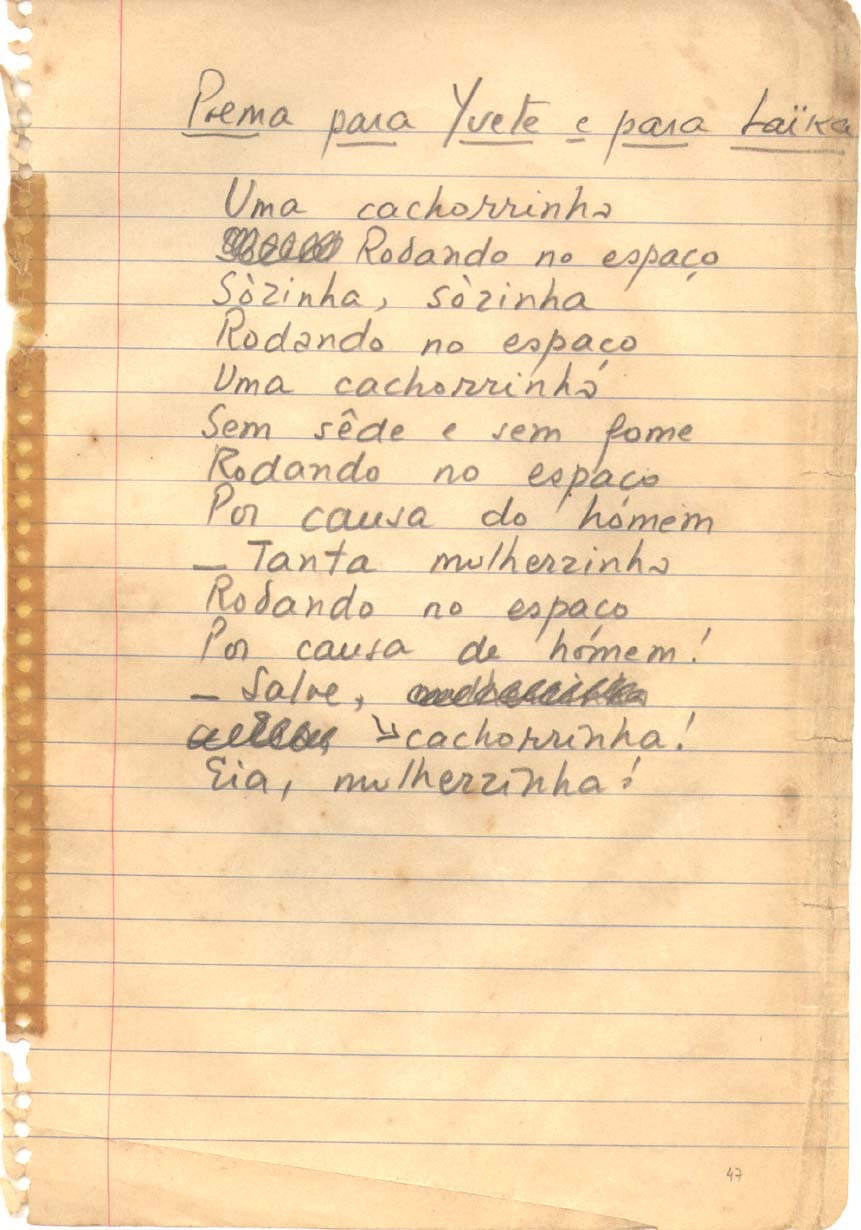 Poema para Yvete e para Laïka
Uma cachorrinha
Rodando no espaço
Sòzinha, sòzinha
Rodando no espaço
Uma cachorrinha
Sem sêde e sem fome
Rodando no espaço
Por causa do hómem
– Tanta mulherzinha
Rodando no espaço
Por causa de hómem!
– Salve,
cachorrinha!
Eia, mulherzinha!
47